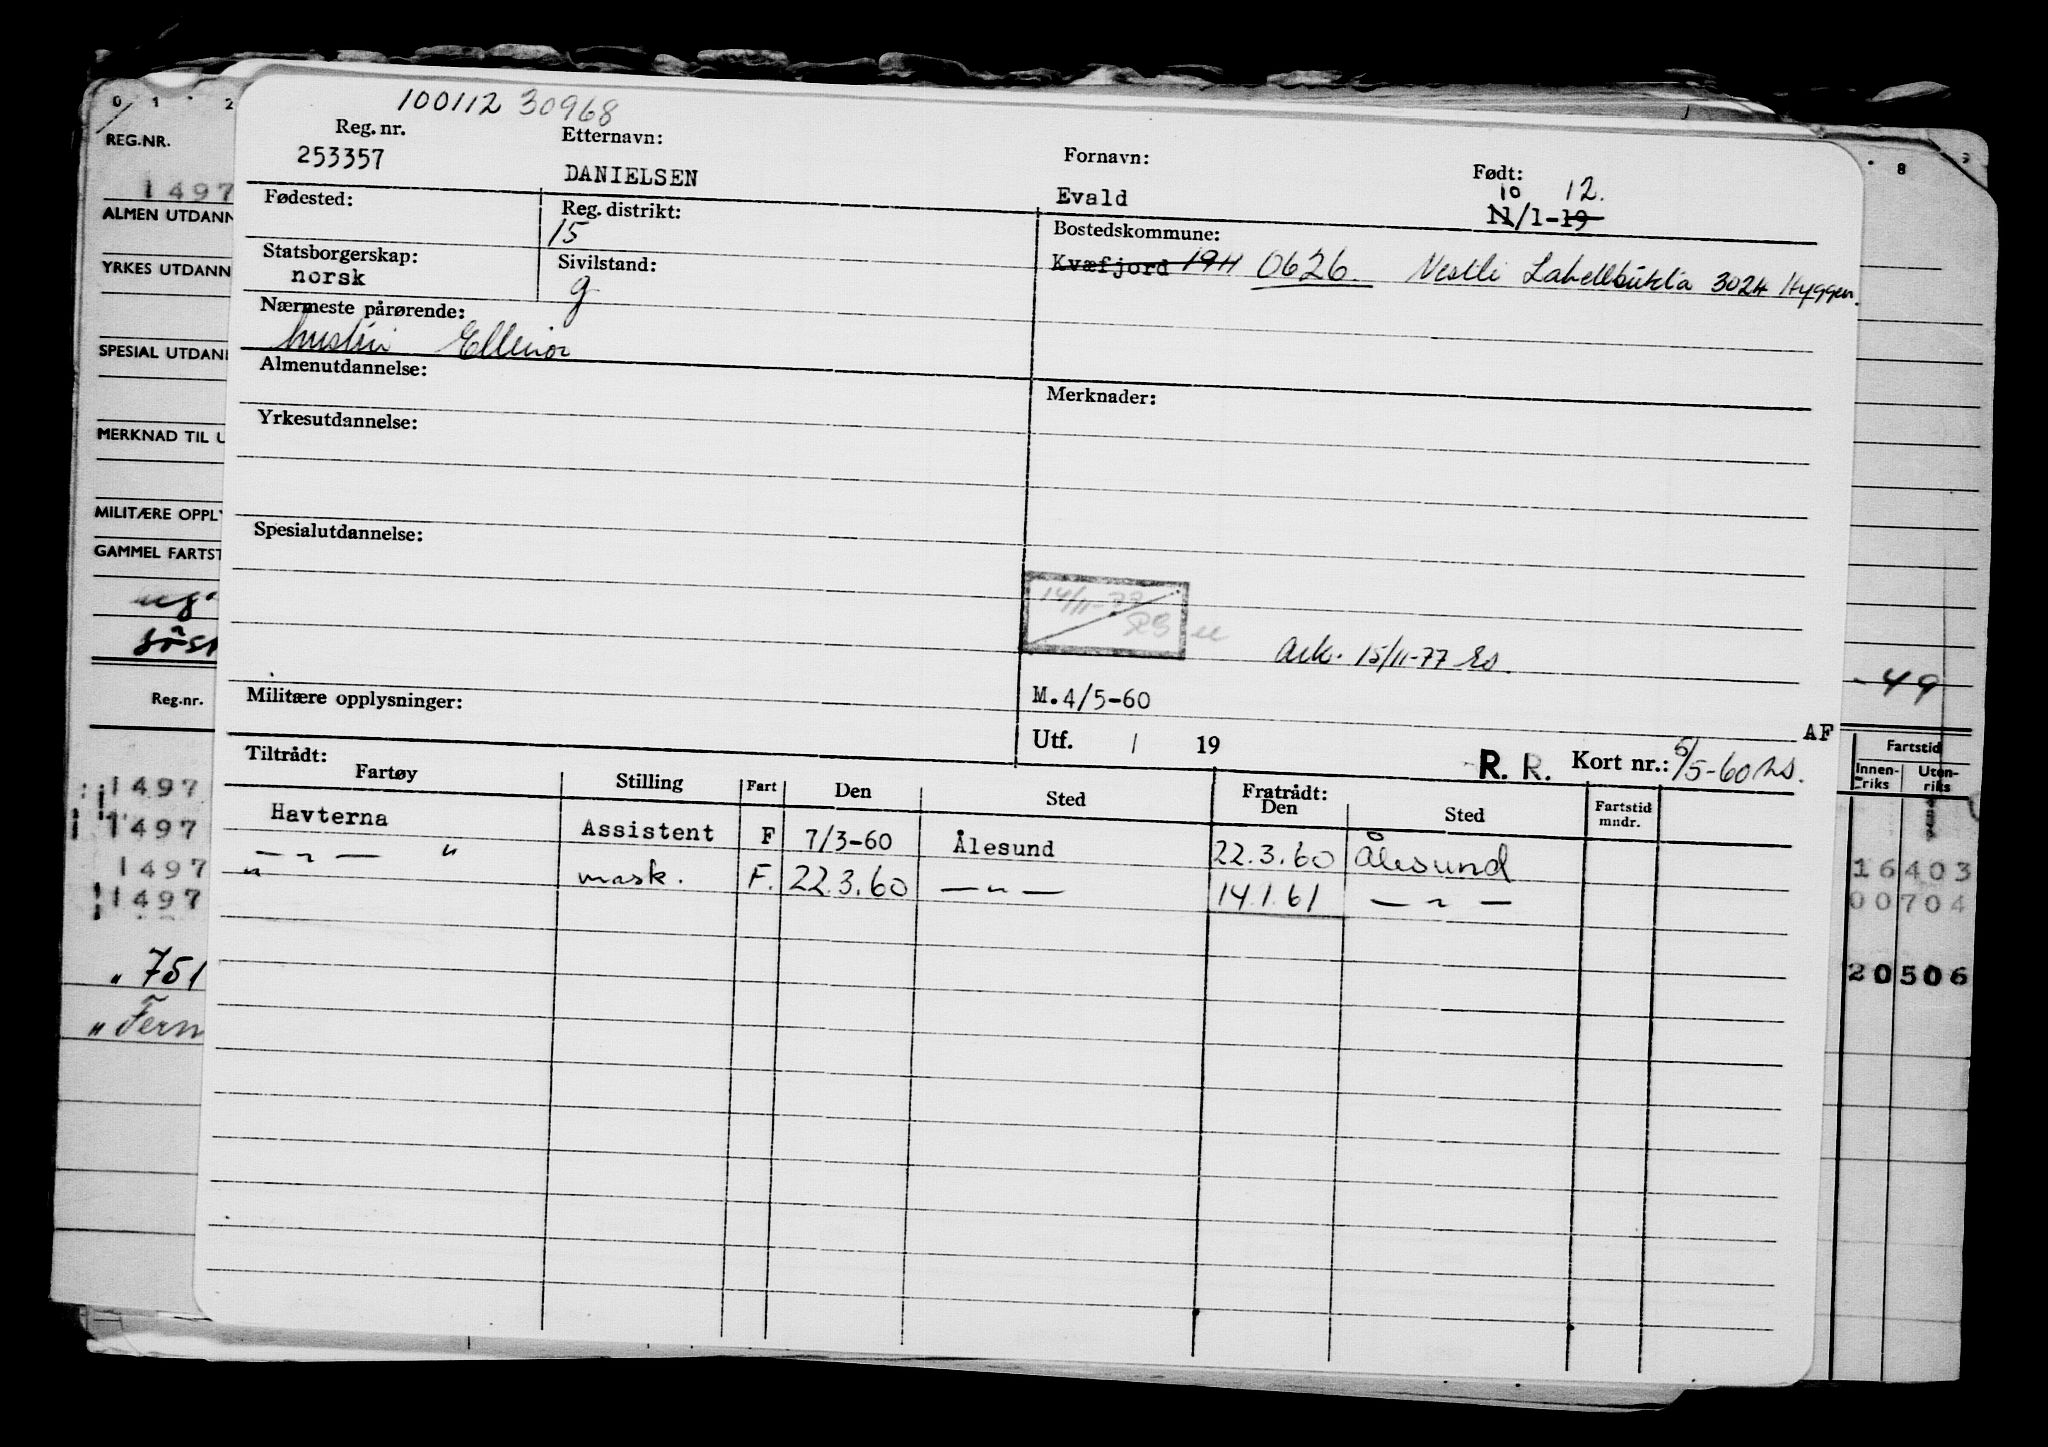 100112 30968
Reg. nr. Etternavn: Fornavn: Født:
253357 DANIELSEN Evald 10 12.
11/1-19
Fødested: Reg. distrikt: Bostedskommune:
15
Kvæfjord 1911 0626 Vestli Lahellbukta 3024 Hyggen.
Statsborgerskap: Sivilstand:
norsk g
Nærmeste pårørende:
hustru Ellinor
Almenutdannelse: Merknader:
Yrkesutdannelse:
Spesialutdannelse:
14/11-77
Ark. 15/11-77
Militære opplysninger: M.4/5-60
AF
Utf. / 19 R. R. Kort nr.: 5/5-60
Tiltrådt: Fratrådt:
Fartøy Stilling Fart Den Sted Den Sted Fartstid mndr.
Havterna Assistent F 7/3-60 Ålesund 22.3.60 Ålesund
— " — " mask. F. 22.3.60 — " — 14.1.61 — " —
"
0 1 2
REG.NR.
1497
ALMEN UTDANN
YRKES UTDANN
SPESIAL UTDAN
MERKNAD TIL U
MILITÆRE OPPL
GAMMEL FARTST
Reg.nr.
1497
1497
1497
1497
" 751
" Fern
8
- 49
Fartstid
Innen-riks Uten-riks
16403
00704
20506